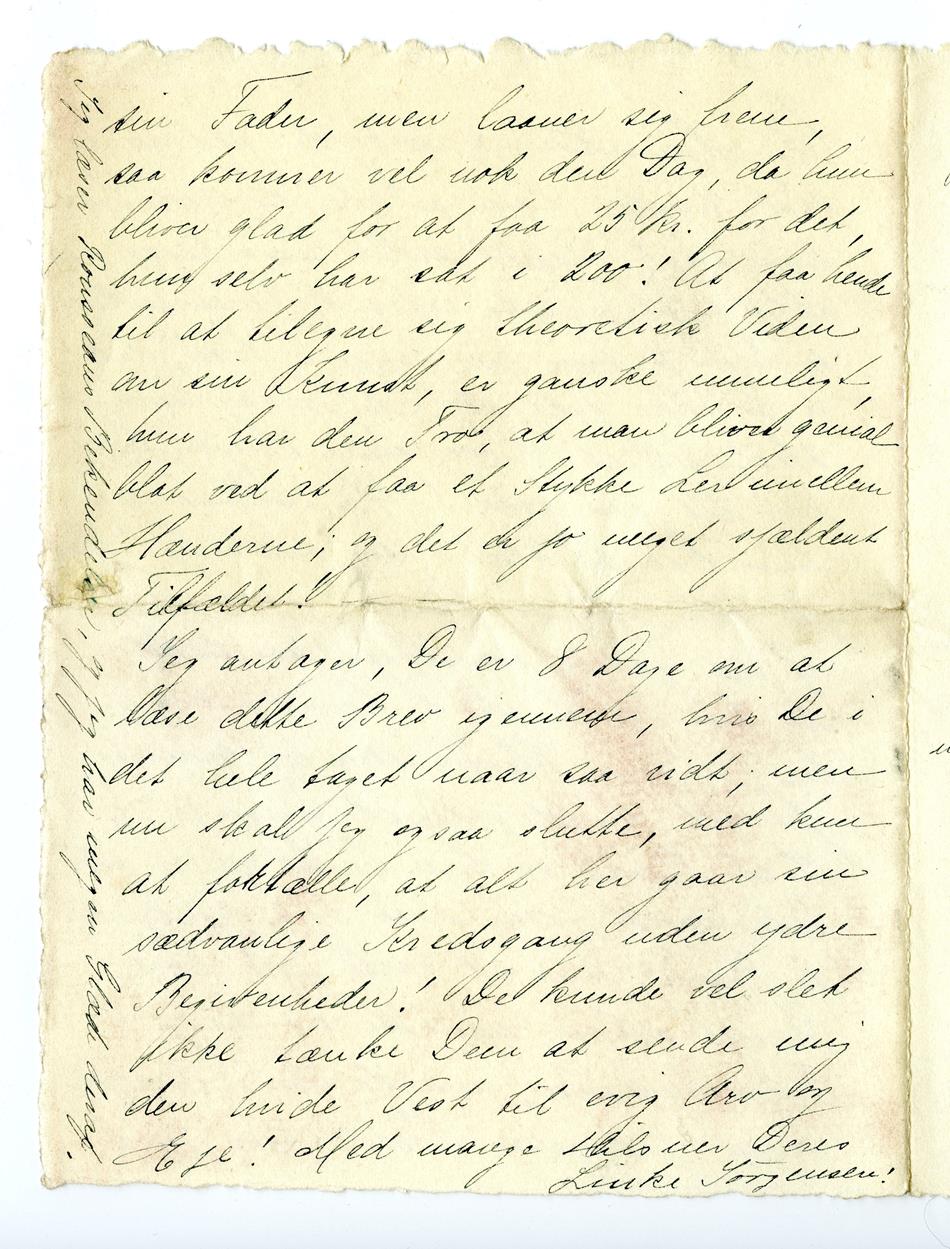 sin Fader, men laaner sig frem,
saa kommer vel nok den Dag, da hun
bliver glad for at faa 25 Kr. for det,
hun selv har sat i 200! At faa hende
til at tilegne sig theoretisk Viden
om sin Kunst, er ganske umuligt,
hun har den Tro, at man bliver genial
blot ved at faa et Stykke Ler imellem
Hænderne; og det er jo meget sjældent
Tilfældet!
Jeg antager, De er 8 Dage om at
læse dette Brev igennem, hvis De i
det hele taget naar saa vidt; men
nu skal jeg ogsaa slutte, med kun
at fortælle, at alt her gaar sin
sædvanlige Kredsgang uden ydre
Begivenheder! De kunde vel slet
ikke tænke Dem at sende mig
den hvide Vest til evig Arv og
Eje! Med mange Hilsner Deres
Linke Jörgensen!
Jeg læser Rousseaus Bekendelser, og jeg har megen Glæde deraf.